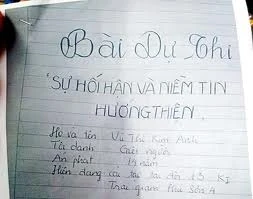 Bài Dự Thi
"SỰ HỐI HẬN VÀ NIỀM TIN
HƯỚNG THIỆN"
Họ và tên Vũ Thị Kim Anh
Tội danh Giết người
Án phạt 14 năm
Hiện đang cải tạo tại đội 13 K1
Trại giam Phú Sơn 4